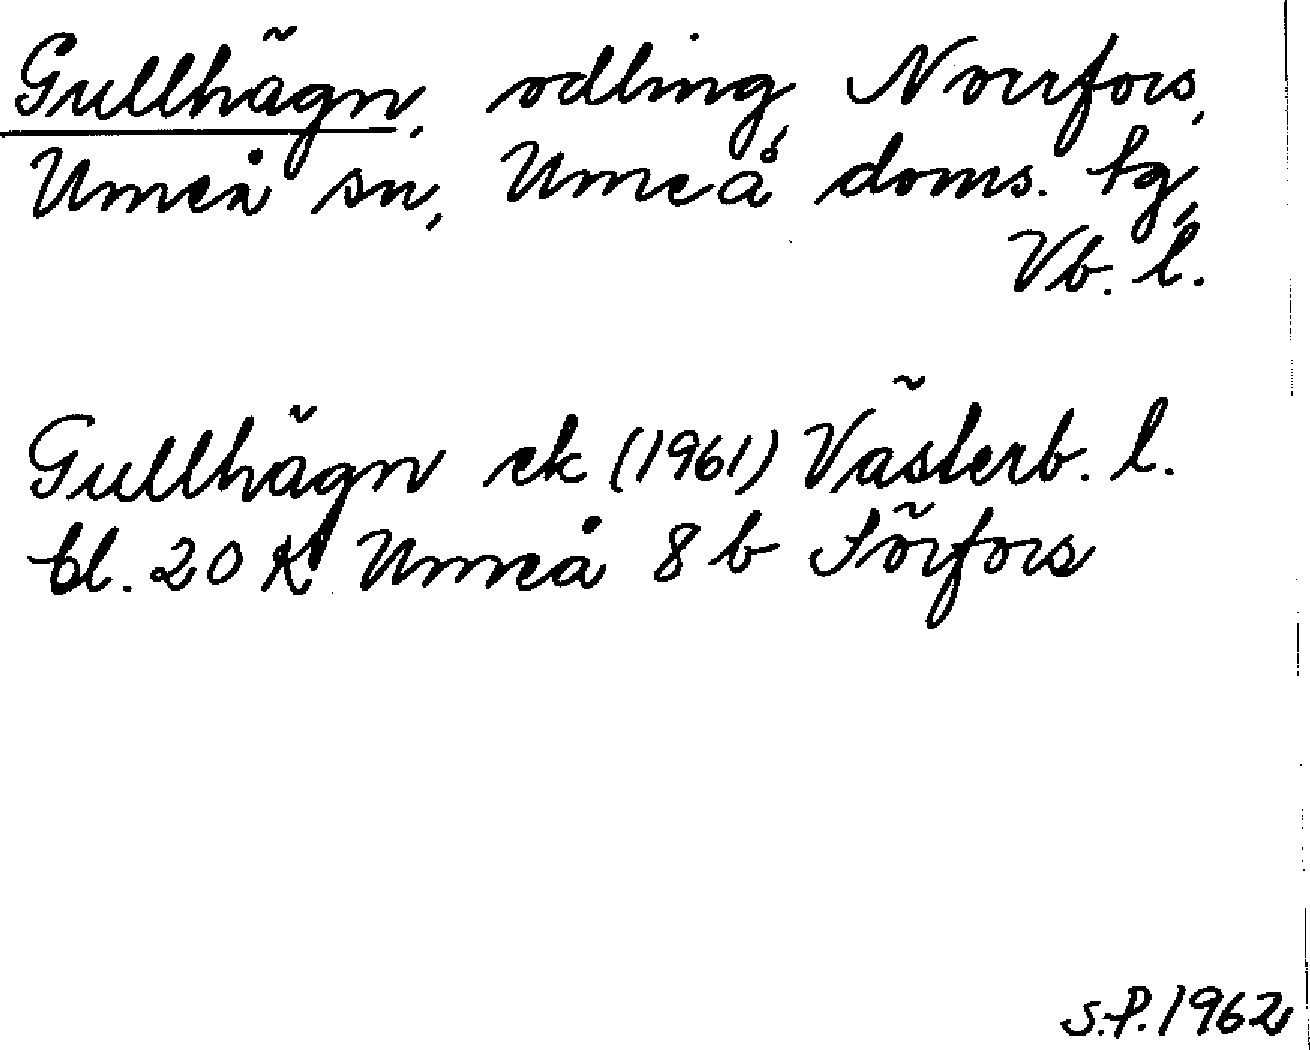 Gullhägn, odling, Norrfors,
Umeå sn, Umeå doms. tg,
Vb. l.
Gullhägn ek (1961) Västerb. l.
bl. 20 K Umeå 8 b Sörfors
S.P. 1962